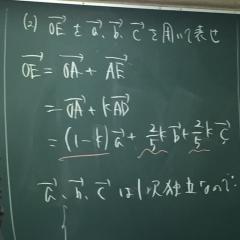 (2) $\overrightarrow{OE}$ を $\vec{a}$、$\vec{b}$、$\vec{c}$ を用いて表せ
$\overrightarrow{OE} = \overrightarrow{OA} + \overrightarrow{AE}$
$= \overrightarrow{OA} + k\overrightarrow{AD}$
$= (1-k)\vec{a} + \frac{2}{5}k\vec{b} + \frac{2}{5}k\vec{c}$
$\vec{a}$、$\vec{b}$、$\vec{c}$ は1次独立なので